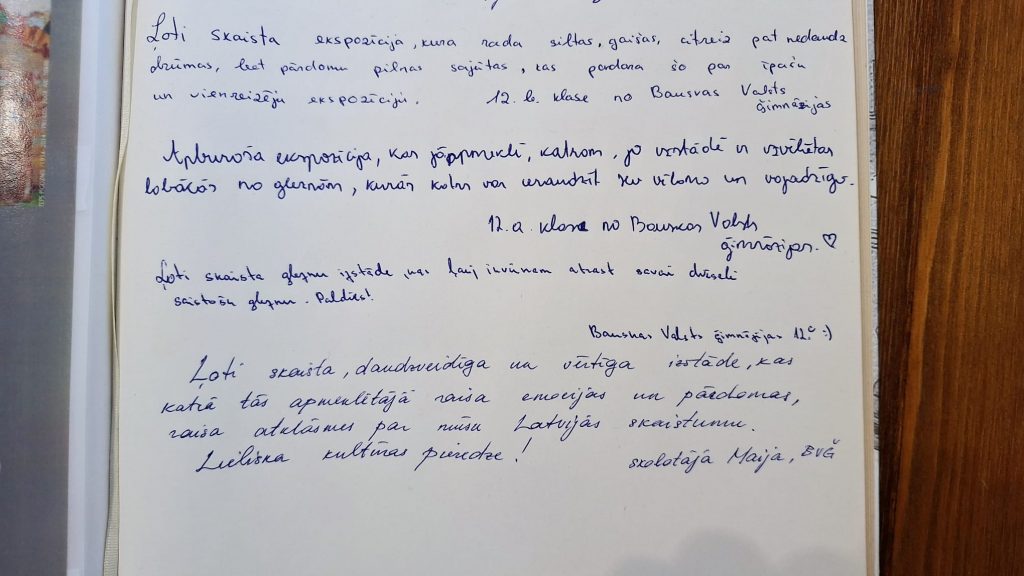 Ļoti skaista ekspozīcija, kura rada siltas, gaišas, citreiz pat nedaudz
drūmas, bet pārdomu pilnas sajūtas, kas padara šo par īpašu
un vienreizēju ekspozīciju. 12. b. klase no Bauskas Valsts
ģimnāzijas
Apburoša ekspozīcija, kas jāapmeklē, katram, jo izstādē ir izvēlētas
labākās no gleznām, kurās katrs var ieraudzīt sev vēlamo un vajadzīgo.
12.a. klase no Bauskas Valsts
ģimnāzijas. ♡
Ļoti skaista gleznu izstāde, kas ļauj ikvienam atrast savai dvēselei
saistošu gleznu. Paldies!
Bauskas Valsts ģimnāzijas 12.c :)
Ļoti skaista, daudzveidīga un vērtīga izstāde, kas
katrā tās apmeklētājā raisa emocijas un pārdomas,
raisa atklāsmes par mūsu Latvijas skaistumu.
Lieliska kultūras pieredze! skolotāja Maija, BVĢ